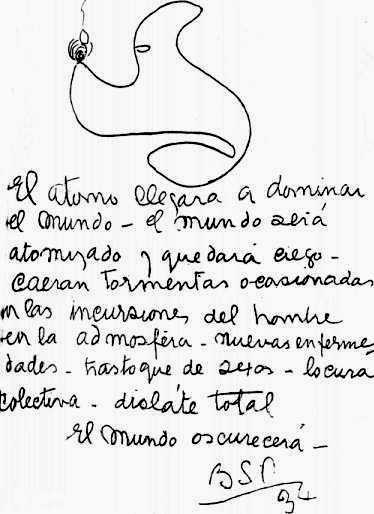 El atomo llegara a dominar
el mundo - el mundo será
atomizado y quedará ciego -
caeran tormentas ocasionadas
en las incursiones del hombre
en la admosfera - nuevas enferme
dades - trastoque de sexos - locura
colectiva - disláte total
El mundo oscurecerá -
BSP
34